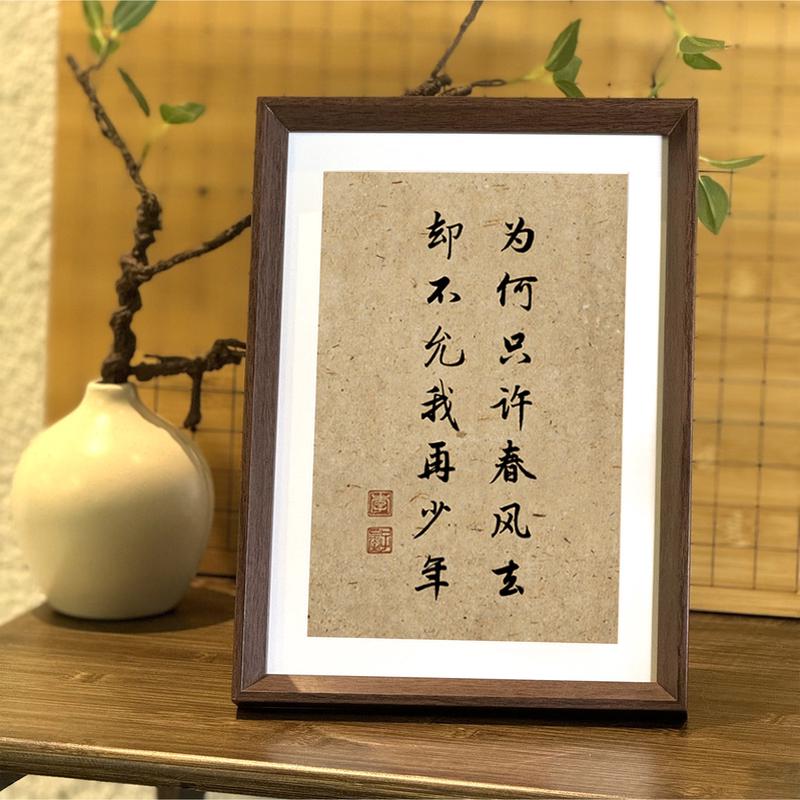 为何只许春风去
却不允我再少年